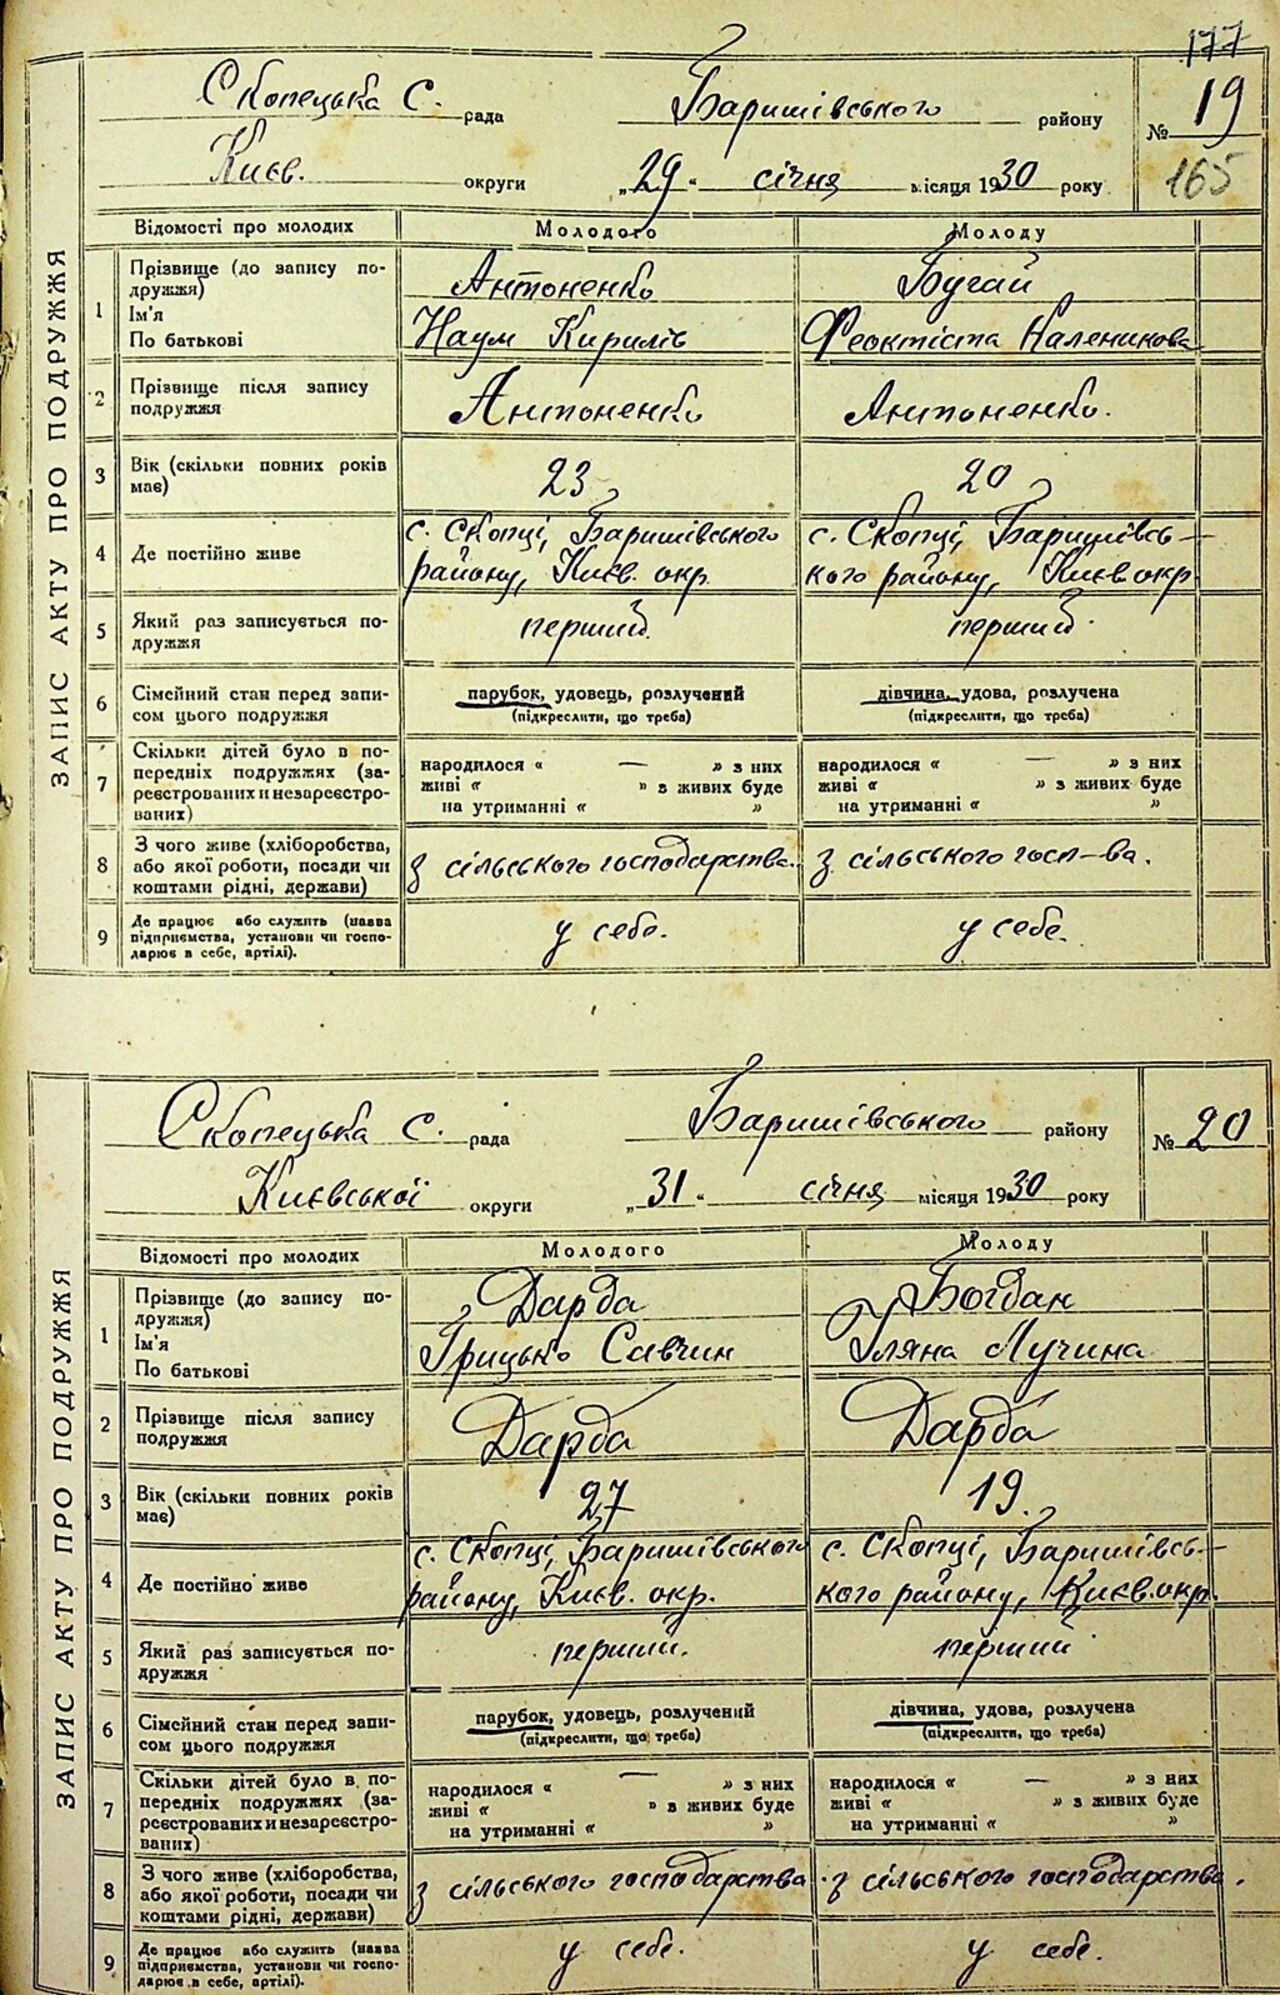 177
Скопецька С. рада Баришівського району № 19
Києв. округи „29“ січня місяця 1930 року 165
ЗАПИС АКТУ ПРО ПОДРУЖЖЯ
Відомості про молодих Молодого Молоду
1 Прізвище (до запису по- Антоненко Бугай
дружжя)
Ім'я
По батькові Наум Кириліч Феоктіста Каленикова
2 Прізвище після запису
подружжя Антоненко Антоненко.
3 Вік (скільки повних років
має) 23 20
4 Де постійно живе с. Скопці, Баришівського с. Скопці, Баришівсь-
району, Києв. окр. кого району, Києв окр
5 Який раз записується по-
дружжя перший. перший
6 Сімейний стан перед запи- парубок, удовець, розлучений дівчина, удова, розлучена
сом цього подружжя (підкреслити, що треба) (підкреслити, що треба)
7 Скільки дітей було в по-
передніх подружжях (за- народилося « — » з них народилося « — » з них
реєстрованих и незареєстро- живі « » з живих буде живі « » з живих буде
ваних) на утриманні « » на утриманні « »
8 З чого живе (хліборобства,
або якої роботи, посади чи з сільського господарства. з сільського госп-ва.
коштами рідні, держави)
9 Де працює або служить (назва
підприємства, установи чи госпо- у себе. у себе.
дарює в себе, артілі).
Скопецька С. рада Баришівського району № 20
Києвської округи „31“ січня місяця 1930 року
ЗАПИС АКТУ ПРО ПОДРУЖЖЯ
Відомості про молодих Молодого Молоду
1 Прізвище (до запису по- Дарда Богдан
дружжя)
Ім'я Грицько Савчин Уляна Лучина
По батькові
2 Прізвище після запису
подружжя Дарда Дарда
3 Вік (скільки повних років
має) 27 19.
4 Де постійно живе с. Скопці, Баришівського с. Скопці, Баришівсь-
району, Києв. окр. кого району, Києв. окр.
5 Який раз записується по-
дружжя перший. перший
6 Сімейний стан перед запи- парубок, удовець, розлучений дівчина, удова, розлучена
сом цього подружжя (підкреслити, що треба) (підкреслити, що треба)
7 Скільки дітей було в по-
передніх подружжях (за- народилося « — » з них народилося « — » з них
реєстрованих и незареєстро- живі « » з живих буде живі « » з живих буде
ваних) на утриманні « » на утриманні « »
8 З чого живе (хліборобства,
або якої роботи, посади чи з сільського господарства з сільського господарства.
коштами рідні, держави)
9 Де працює або служить (назва
підприємства, установи чи госпо- у себе. у себе.
дарює в себе, артілі).